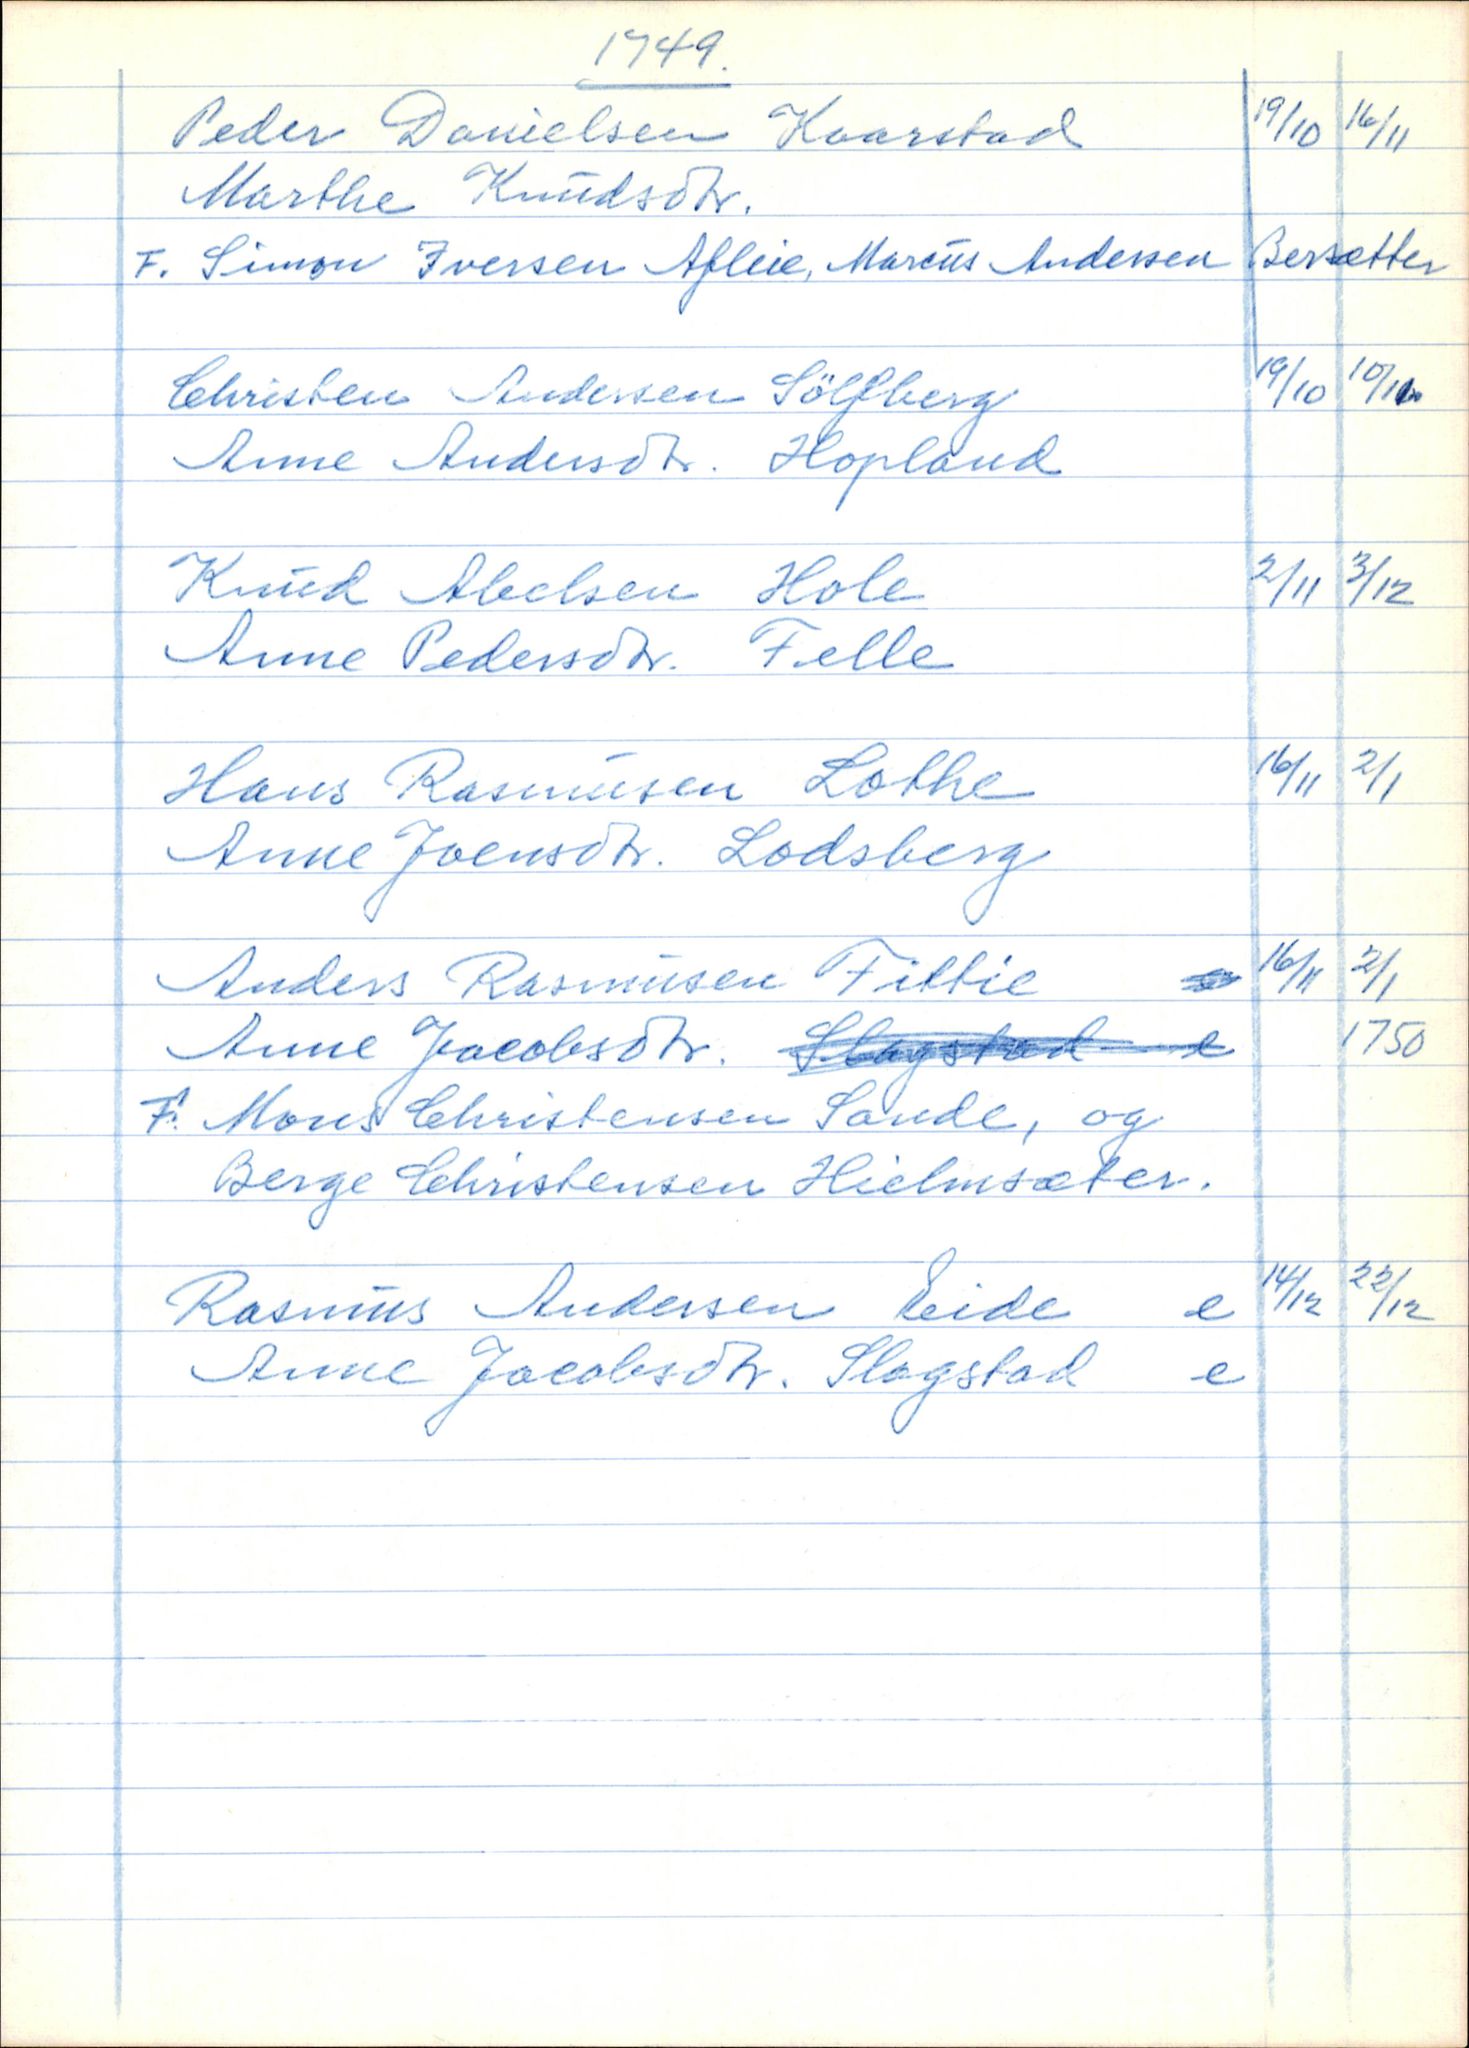 1749.
Peder Danielsen Kaarstad 19/10 16/11
Marthe Knudsdtr.
F. Simon Iversen Afleie, Marcus Andersen Bersætter
Christen Andersen Sölfberg 19/10
Anne Andersdtr. Hopland
Knud Abelsen Hole 2/11 3/12
Anne Pedersdtr. Felle
Hans Rasmusen Lothe 16/11 2/1
Anne Joensdtr. Lodsberg
Anders Rasmusen Fittie 16/11 2/1
Anne Jacobsdtr. Slagstad e 1750
F. Mons Christensen Sande, og
Berge Christensen Hielmsæter.
Rasmus Andersen Eide e 14/12 22/12
Anne Jacobsdtr. Slagstad e